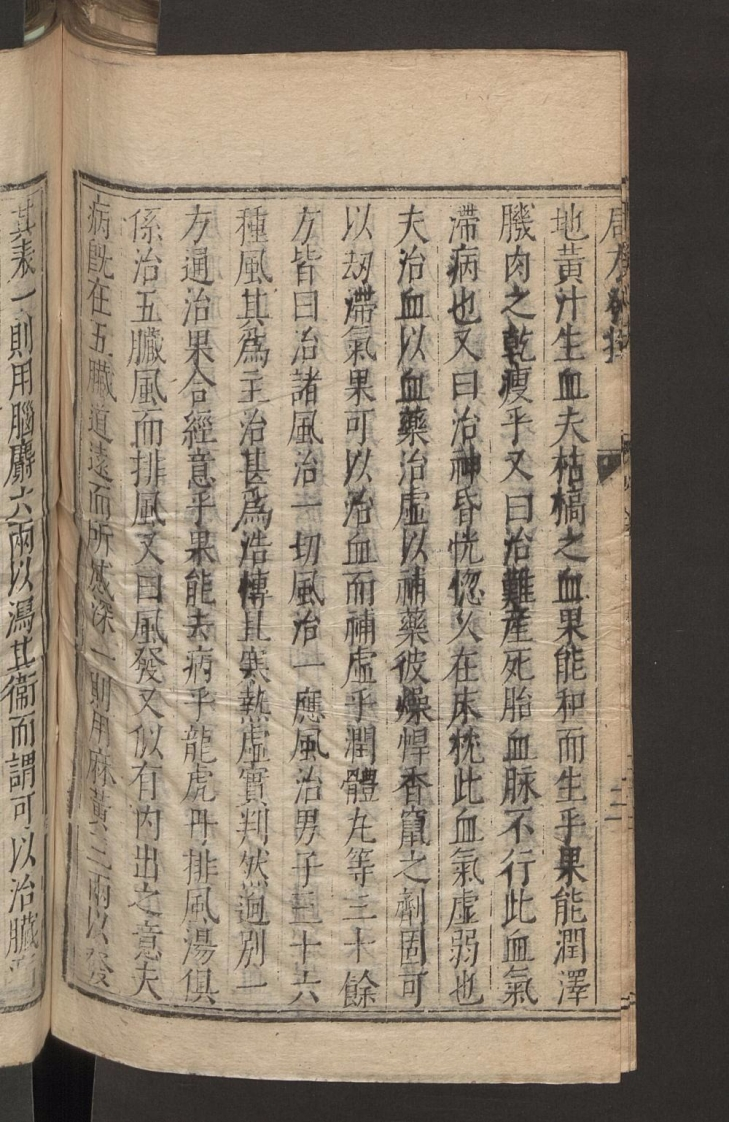 局方發揮
地黃汁生血夫枯槁之血果能和而生乎果能潤澤
膄肉之乾瘦乎又曰治難產死胎血脉不行此血氣
滯病也又曰治神昏恍惚久在床枕此血氣虛弱也
夫治血以血藥治虛以補藥彼燥悍香竄之劑固可
以劫滯氣果可以治血而補虛乎潤體丸等三十餘
方皆曰治諸風治一切風治一應風治男子三十六
種風其爲主治甚爲浩博且寒熱虛實判然逈別一
方通治果合經意乎果能去病乎龍虎丹排風湯俱
係治五臟風而排風又曰風發又似有內出之意夫
病旣在五臟道遠而所感深一則用麻黃三兩以發
其表一則用腦麝六兩以瀉其衞而謂可以治臟